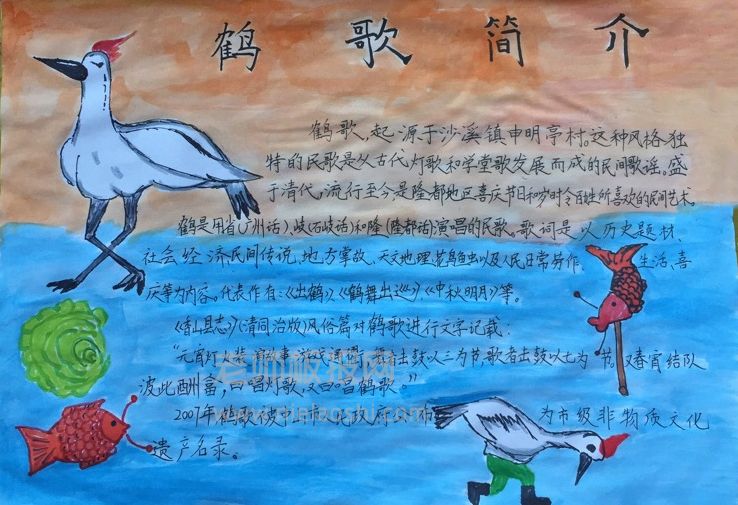 鹤歌简介
鹤歌，起源于沙溪镇申明亭村。这种风格独
特的民歌是从古代灯歌和学堂歌发展而成的民间歌谣。盛
于清代，流行至今，是隆都地区喜庆节日和岁时令百姓所喜欢的民间艺术。
鹤是用省(广州话)、岐(石岐话)和隆(隆都话)演唱的民歌。歌词是以历史题材、
社会经济、民间传说、地方掌故、天文地理、花鸟鱼虫以及人民日常劳作、生活、喜
庆等为内容。代表作有：《出鹤》、《鹤舞出巡》、《中秋明月》等。
《香山县志》(清同治版)风俗篇对鹤歌进行文字记载：
“元宵灯火 故事 击鼓以三为节，歌者击鼓以七为节。又春宵结队
彼此酬 ，曰唱灯歌，又曰唱鹤歌。”
2007年鹤歌被中山市 为市级非物质文化
遗产名录。
老师板报网